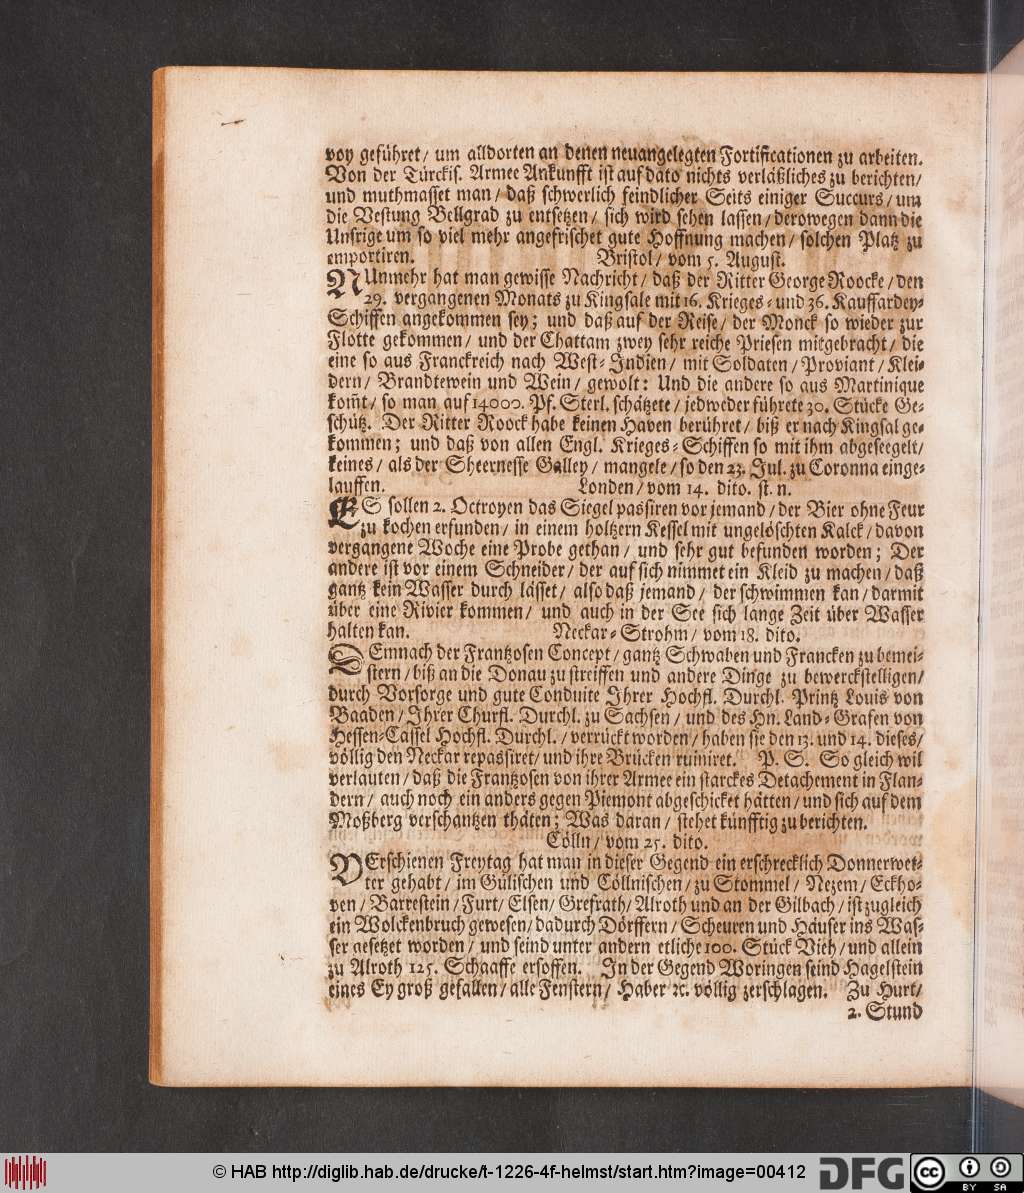 voy geführet/ um alldorten an denen neuangelegten Fortificationen zu arbeiten.
Von der Türckis. Armee Ankunfft ist auf dato nichts verläßliches zu berichten/
und muthmasset man/ daß schwerlich feindlicher Seits einiger Succurs/ um
die Vestung Bellgrad zu entsetzen/ sich wird sehen lassen/ derowegen dann die
Unsrige um so viel mehr angefrischet gute Hoffnung machen/ solchen Platz zu
emportiren. Bristol/ vom 5. August.
NUnmehr hat man gewisse Nachricht/ daß der Ritter George Roocke/ den
29. vergangenen Monats zu Kingsale mit 16. Krieges- und 36. Kauffardey-
Schiffen angekommen sey; und daß auf der Reise/ der Monck so wieder zur
Flotte gekommen/ und der Chattam zwey sehr reiche Priesen mitgebracht/ die
eine so aus Franckreich nach West-Indien/ mit Soldaten/ Proviant/ Klei-
dern/ Brandtewein und Wein/ gewolt: Und die andere so aus Martinique
kom̃t/ so man auf 14000. Pf. Sterl. schätzete/ jedweder führete 30. Stücke Ge-
schütz. Der Ritter Roock habe keinen Haven berühret/ biß er nach Kingsal ge-
kommen; und daß von allen Engl. Krieges-Schiffen so mit ihm abgeseegelt/
keines/ als der Sheernesse Galley/ mangele/ so den 23. Jul. zu Coronna einge-
lauffen. Londen/ vom 14. dito. st. n.
ES sollen 2. Octroyen das Siegel passiren vor jemand/ der Bier ohne Feur
zu kochen erfunden/ in einem holtzern Kessel mit ungelöschten Kalck/ davon
vergangene Woche eine Probe gethan/ und sehr gut befunden worden; Der
andere ist vor einem Schneider/ der auf sich nimmet ein Kleid zu machen/ daß
gantz kein Wasser durch lässet/ also daß jemand/ der schwimmen kan/ darmit
über eine Rivier kommen/ und auch in der See sich lange Zeit über Wasser
halten kan. Neckar-Strohm/ vom 18. dito.
DEmnach der Frantzosen Concept/ gantz Schwaben und Francken zu bemei-
stern/ biß an die Donau zu streiffen und andere Dinge zu bewerckstelligen/
durch Vorsorge und gute Conduite Ihrer Hochfl. Durchl. Printz Louis von
Baaden/ Ihrer Churfl. Durchl. zu Sachsen/ und des Hn. Land-Grafen von
Hessen-Cassel Hochfl. Durchl./ verrückt worden/ haben sie den 13. und 14. dieses/
völlig den Neckar repassiret/ und ihre Brücken ruiniret. P. S. So gleich wil
verlauten/ daß die Frantzosen von ihrer Armee ein starckes Detachement in Flan-
dern/ auch noch ein anders gegen Piemont abgeschicket hätten/ und sich auf dem
Moßberg verschantzen thäten; Was daran/ stehet künfftig zu berichten.
Cölln/ vom 25. dito.
VErschienen Freytag hat man in dieser Gegend ein erschrecklich Donnerwet-
ter gehabt/ im Gülischen und Cöllnischen/ zu Stommel/ Nezem/ Eckho-
ven/ Barrestein/ Furt/ Elsen/ Grefrath/ Alroth und an der Gilbach/ ist zugleich
ein Wolckenbruch gewesen/ dadurch Dörffern/ Scheuren und Häuser ins Was-
ser gesetzet worden/ und seind unter andern etliche 100. Stück Vieh/ und allein
zu Alroth 125. Schaaffe ersoffen. In der Gegend Woringen seind Hagelstein
eines Ey groß gefallen/ alle Fenstern/ Haber ꝛc. völlig zerschlagen. Zu Hurt/
2. Stund
© HAB http://diglib.hab.de/drucke/t-1226-4f-helmst/start.htm?image=00412
DFG
cc BY SA